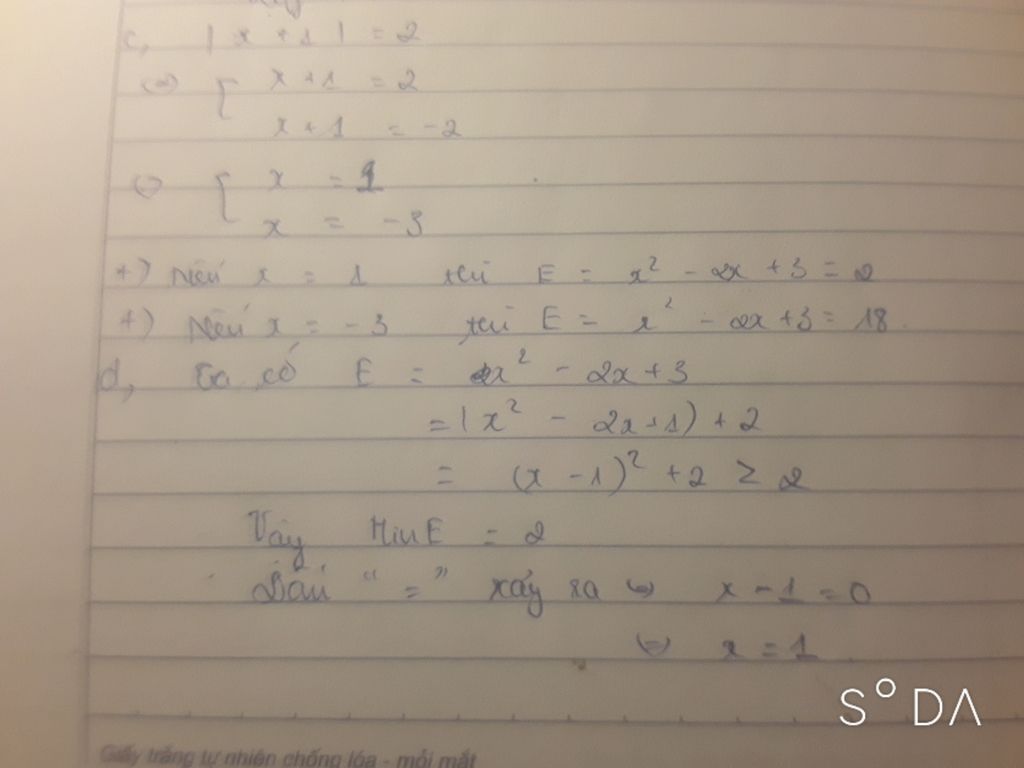 c, |x + 1| = 2
⇔ [ x + 1 = 2
x + 1 = -2
⇔ [ x = 1
x = -3
+) Nếu x = 1 thì E = x² - 2x + 3 = 2
+) Nếu x = -3 thì E = x² - 2x + 3 = 18.
d, Ta có E = x² - 2x + 3
= (x² - 2x + 1) + 2
= (x - 1)² + 2 ≥ 2
Vậy Min E = 2
Dấu " = " xảy ra ⇔ x - 1 = 0
⇔ x = 1
S°DA
Giấy trắng tự nhiên chống lóa - mỏi mắt